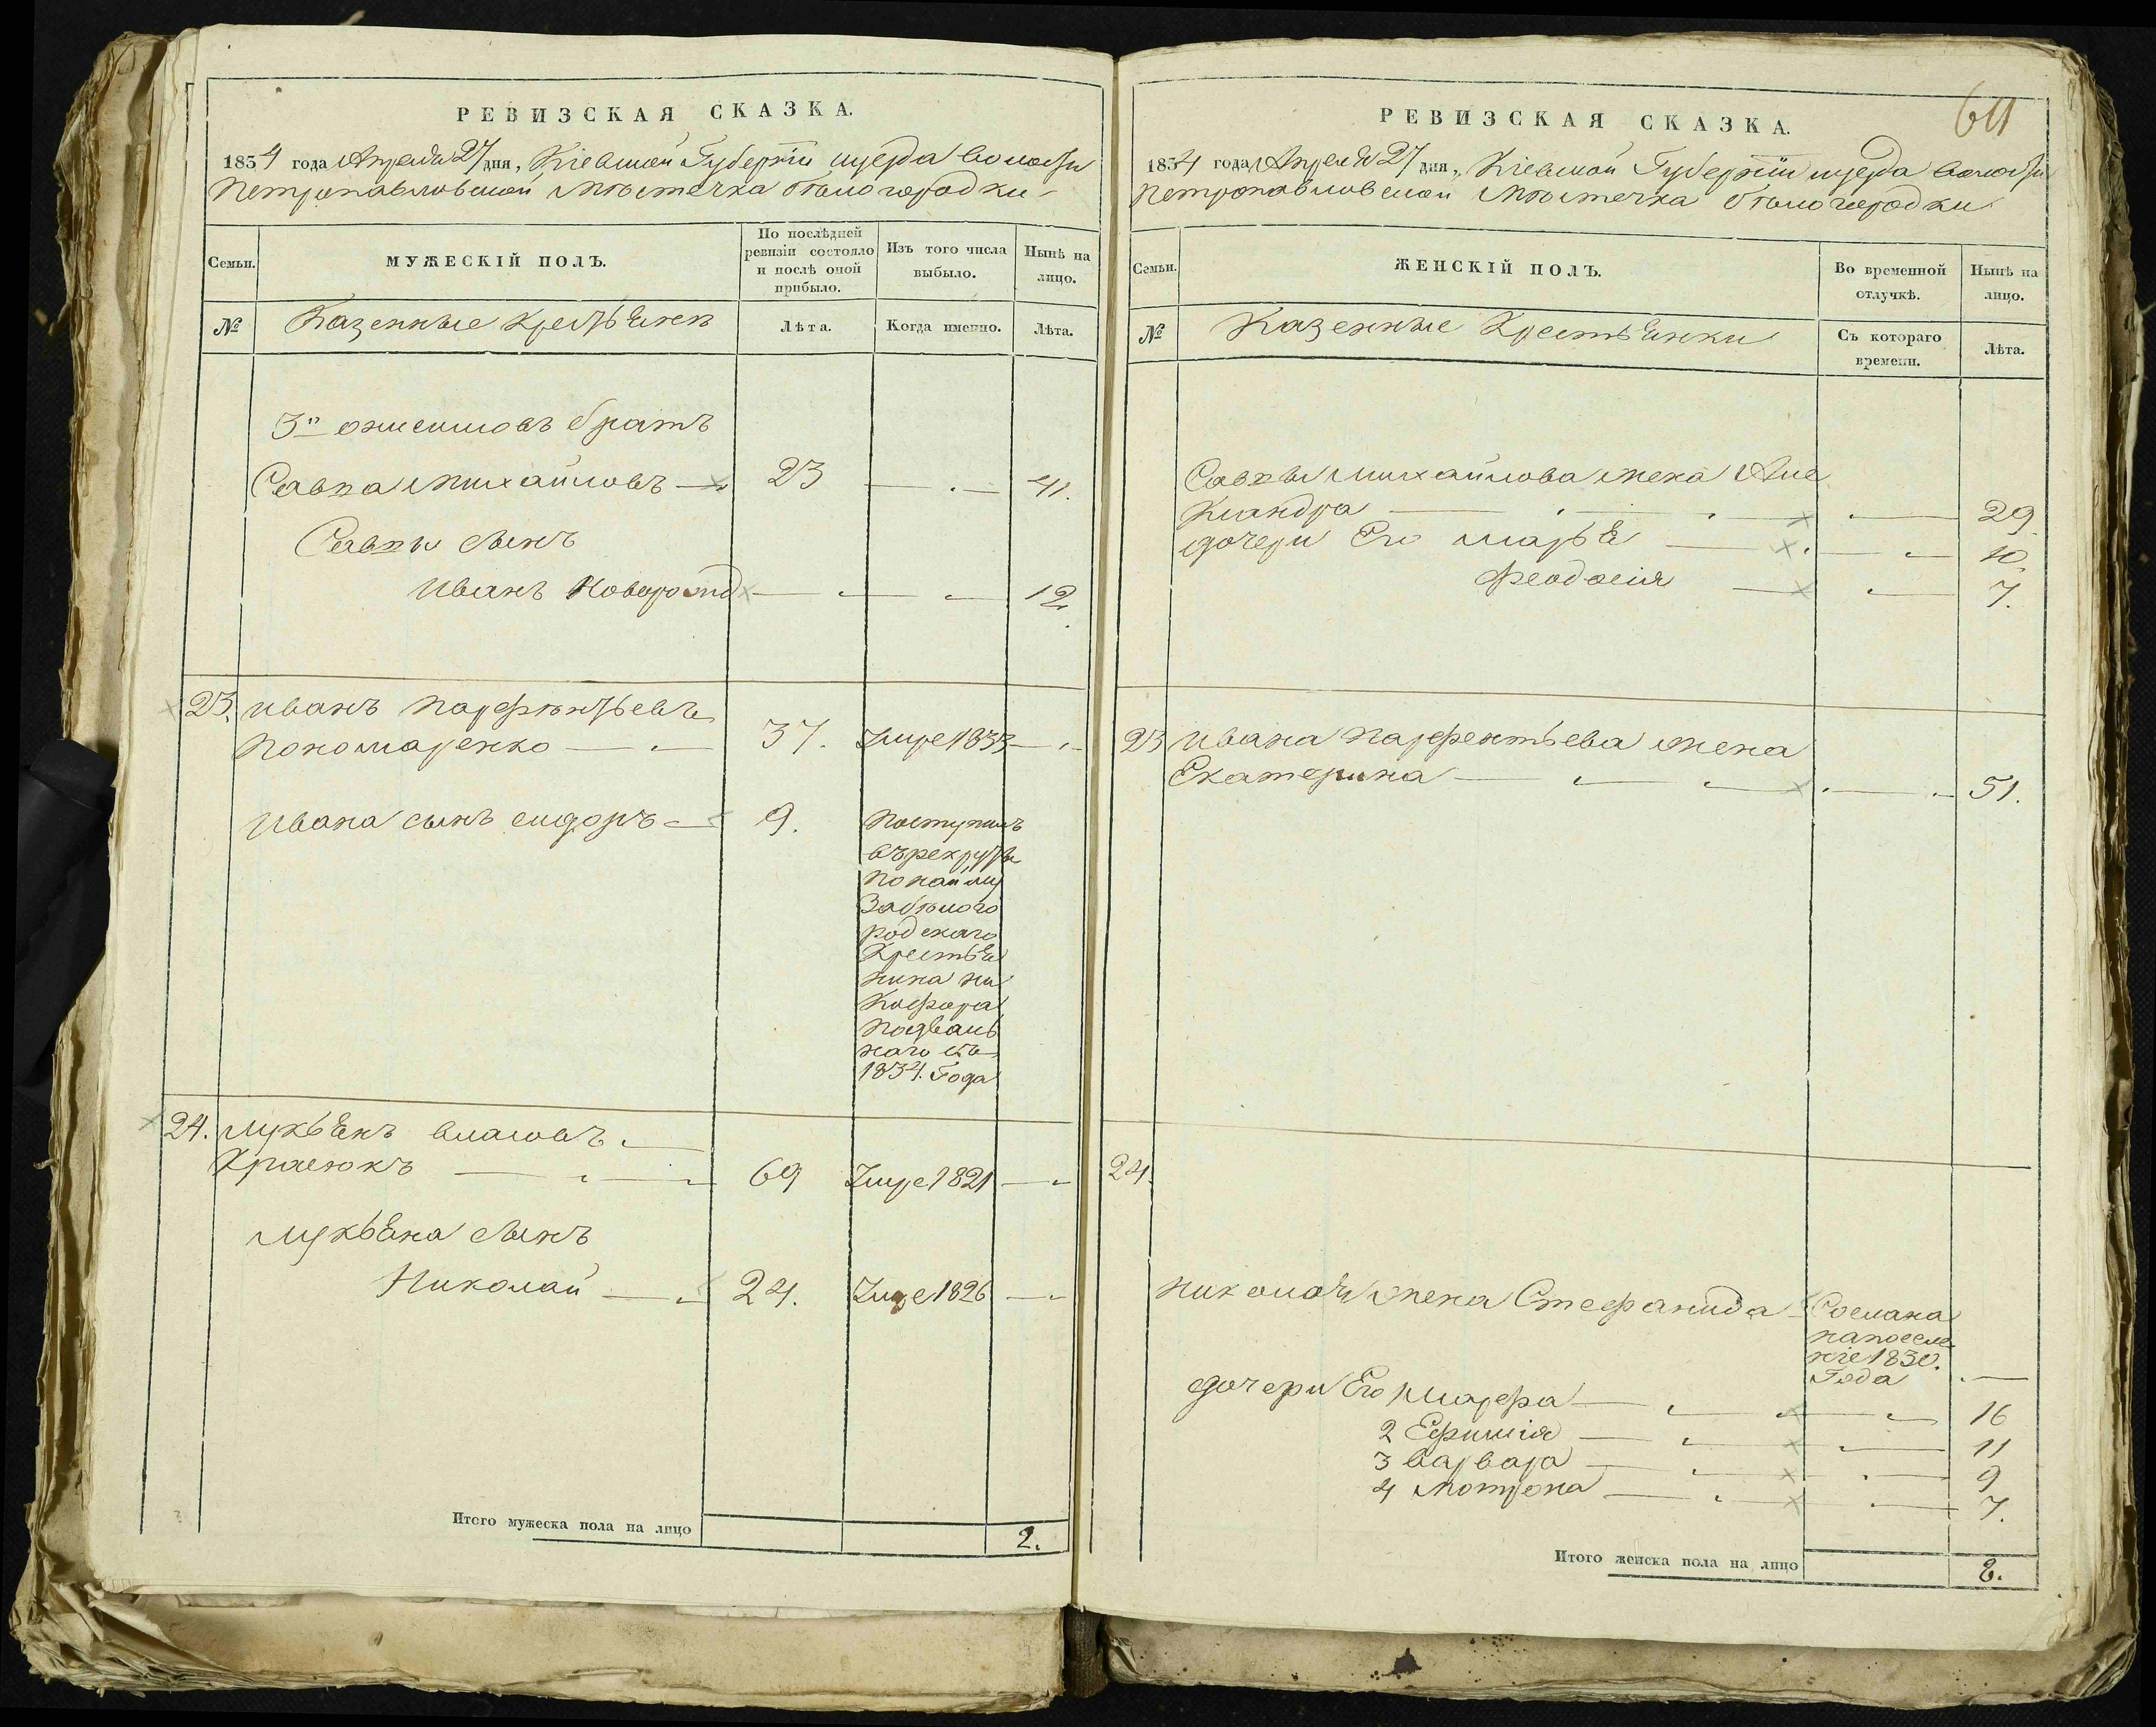 РЕВИЗСКАЯ СКАЗКА.
1834 года Апреля 27 дня, Кіевской Губерніи уезда волости
Петропавловской Мѣстечка Бѣлогородки
Семьи.
МУЖЕСКІЙ ПОЛЪ.
По послѣдней ревизіи состояло и послѣ оной прибыло.
Изъ того числа выбыло.
Нынѣ на лицо.
№
Казенные Крестьяне
Лѣта.
Когда именно.
Лѣта.
3й братъ
Савка Михайловъ 23 41.
Савки сынъ
Иванъ Новорожд 12.
23. Иванъ Парфѣнтьевъ
Пономаренко 37. Умре 1833
Ивана сынъ Сидоръ 9. Поступилъ
въ рекруты
по найму
За бѣлого
родскаго
Крестья
нина Ни
кифора
1834. Года
24. Лукьянъ Власовъ
Красюкъ 69 Умре 1821
Лукьяна сынъ
Николай 24. Умре 1826
Итого мужеска пола на лицо 2.
РЕВИЗСКАЯ СКАЗКА.
611
1834 года Апреля 27 дня, Кіевской Губерніи уезда волости
Петропавловской Мѣстечка Бѣлогородки
Семьи.
ЖЕНСКІЙ ПОЛЪ.
Во временной отлучкѣ.
Нынѣ на лицо.
№
Казенные Крестьянки
Съ котораго времени.
Лѣта.
Савки Михайлова жена Але
ксандра 29
дочери Его Марья 10.
Феодосія 7.
23 Ивана Парфентьева жена
Екатерина 51.
24.
Николая жена Стефанида Сослана
на поселе
ніе 1830.
Года
дочери Его 1 Марфа 16
2 Ефимія 11
3 Варвара 9
4 Мотрона 7.
Итого женска пола на лицо 8.